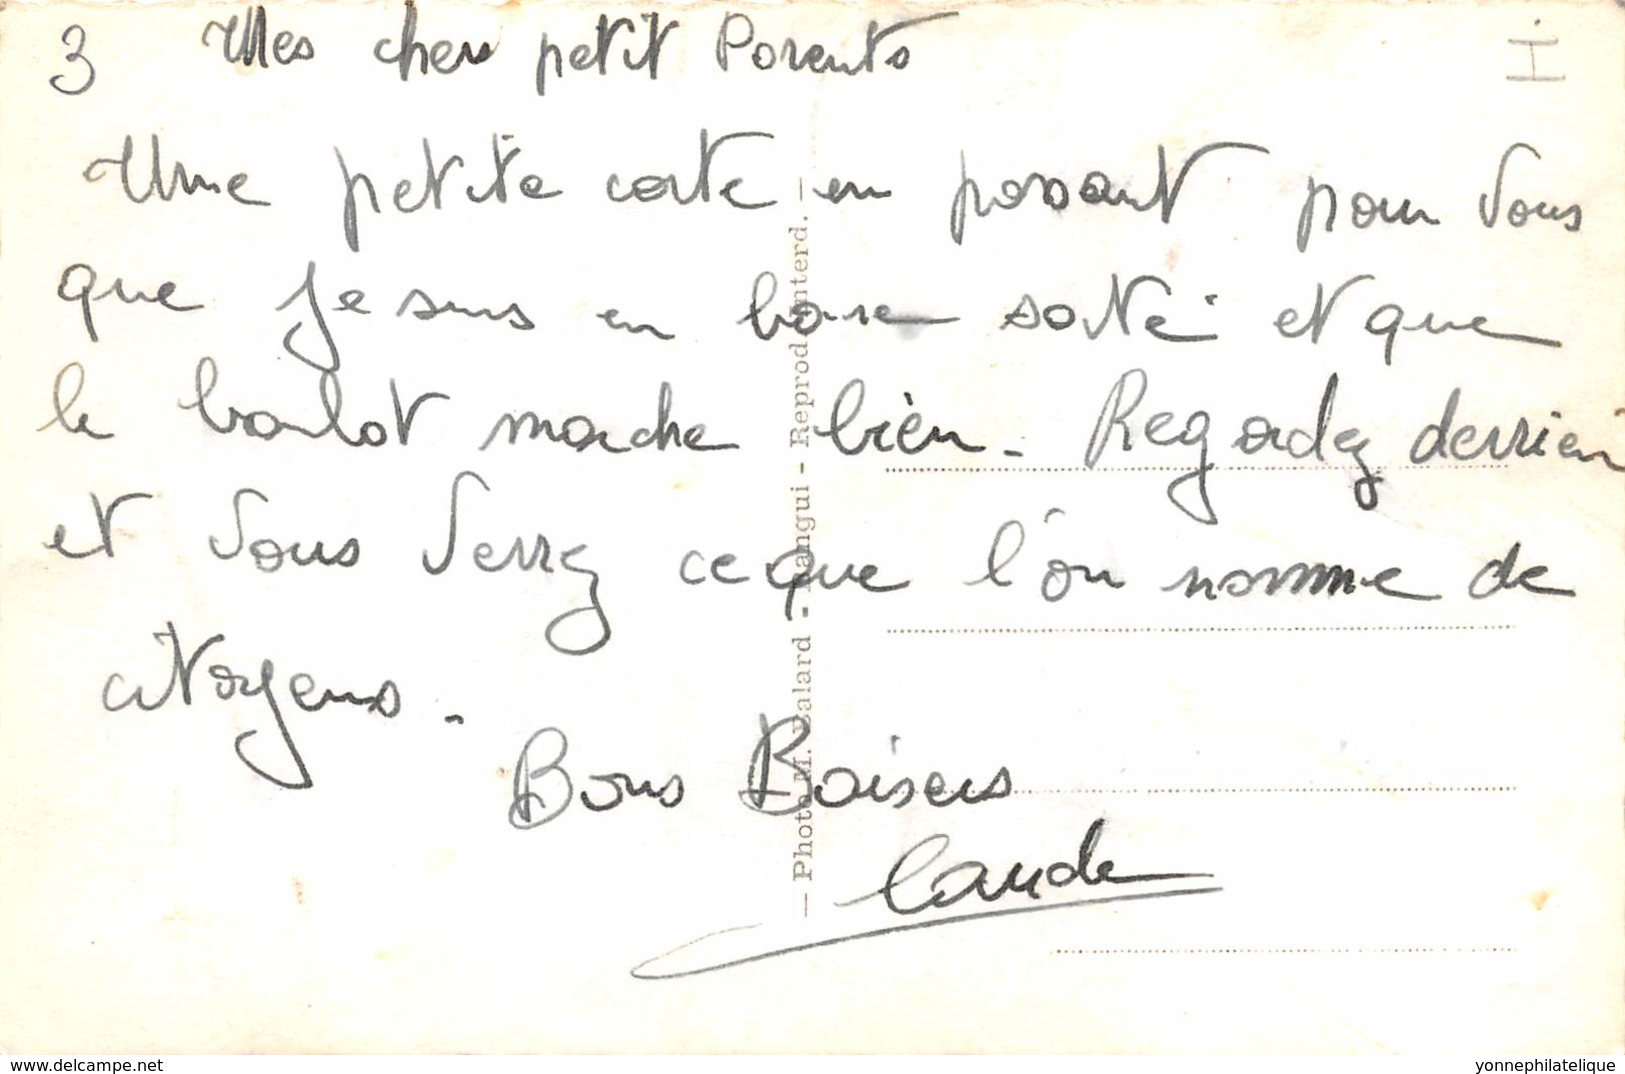 3 Mes chers petit Parents
I
Une petite carte en passant pour Vous
que je suis en bonne santé et que
le boulot marche bien. Regardez derrière
et Vous Verrez ce que l'on nomme de
citoyens.
Bons Baisers
Claude
— Photo M. Calard - Bangui - Reprod. interd. —
www.delcampe.net
yonnephilatelique